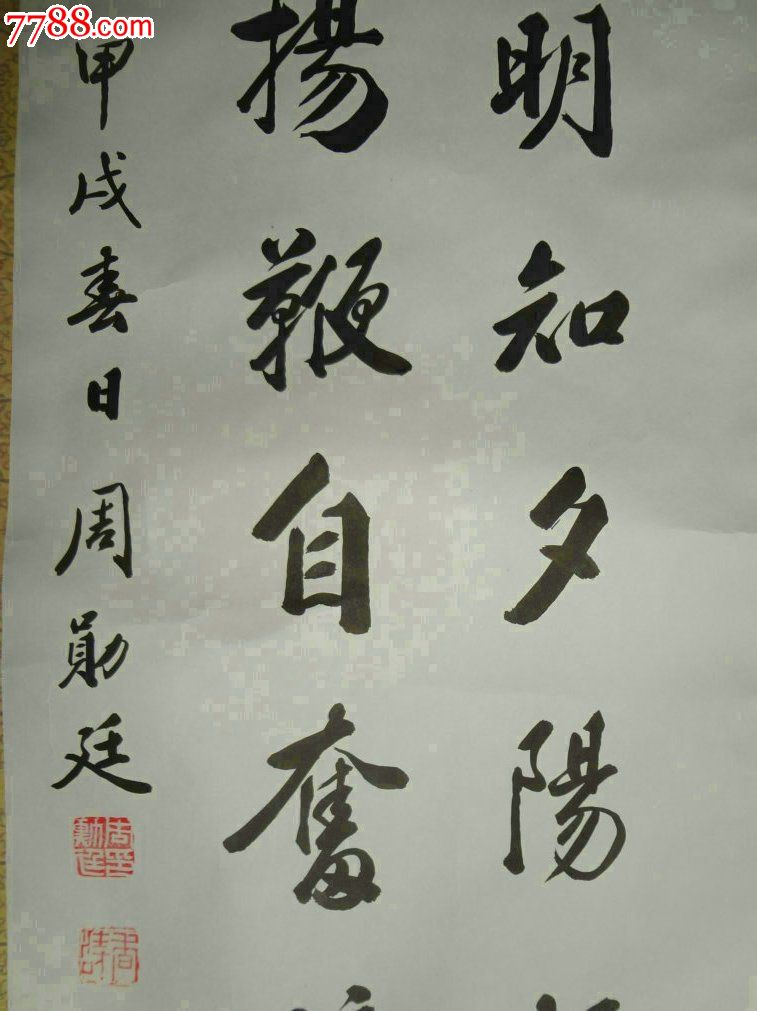 7788.com
明知夕陽
揚鞭自奮
甲戌春日周勛廷